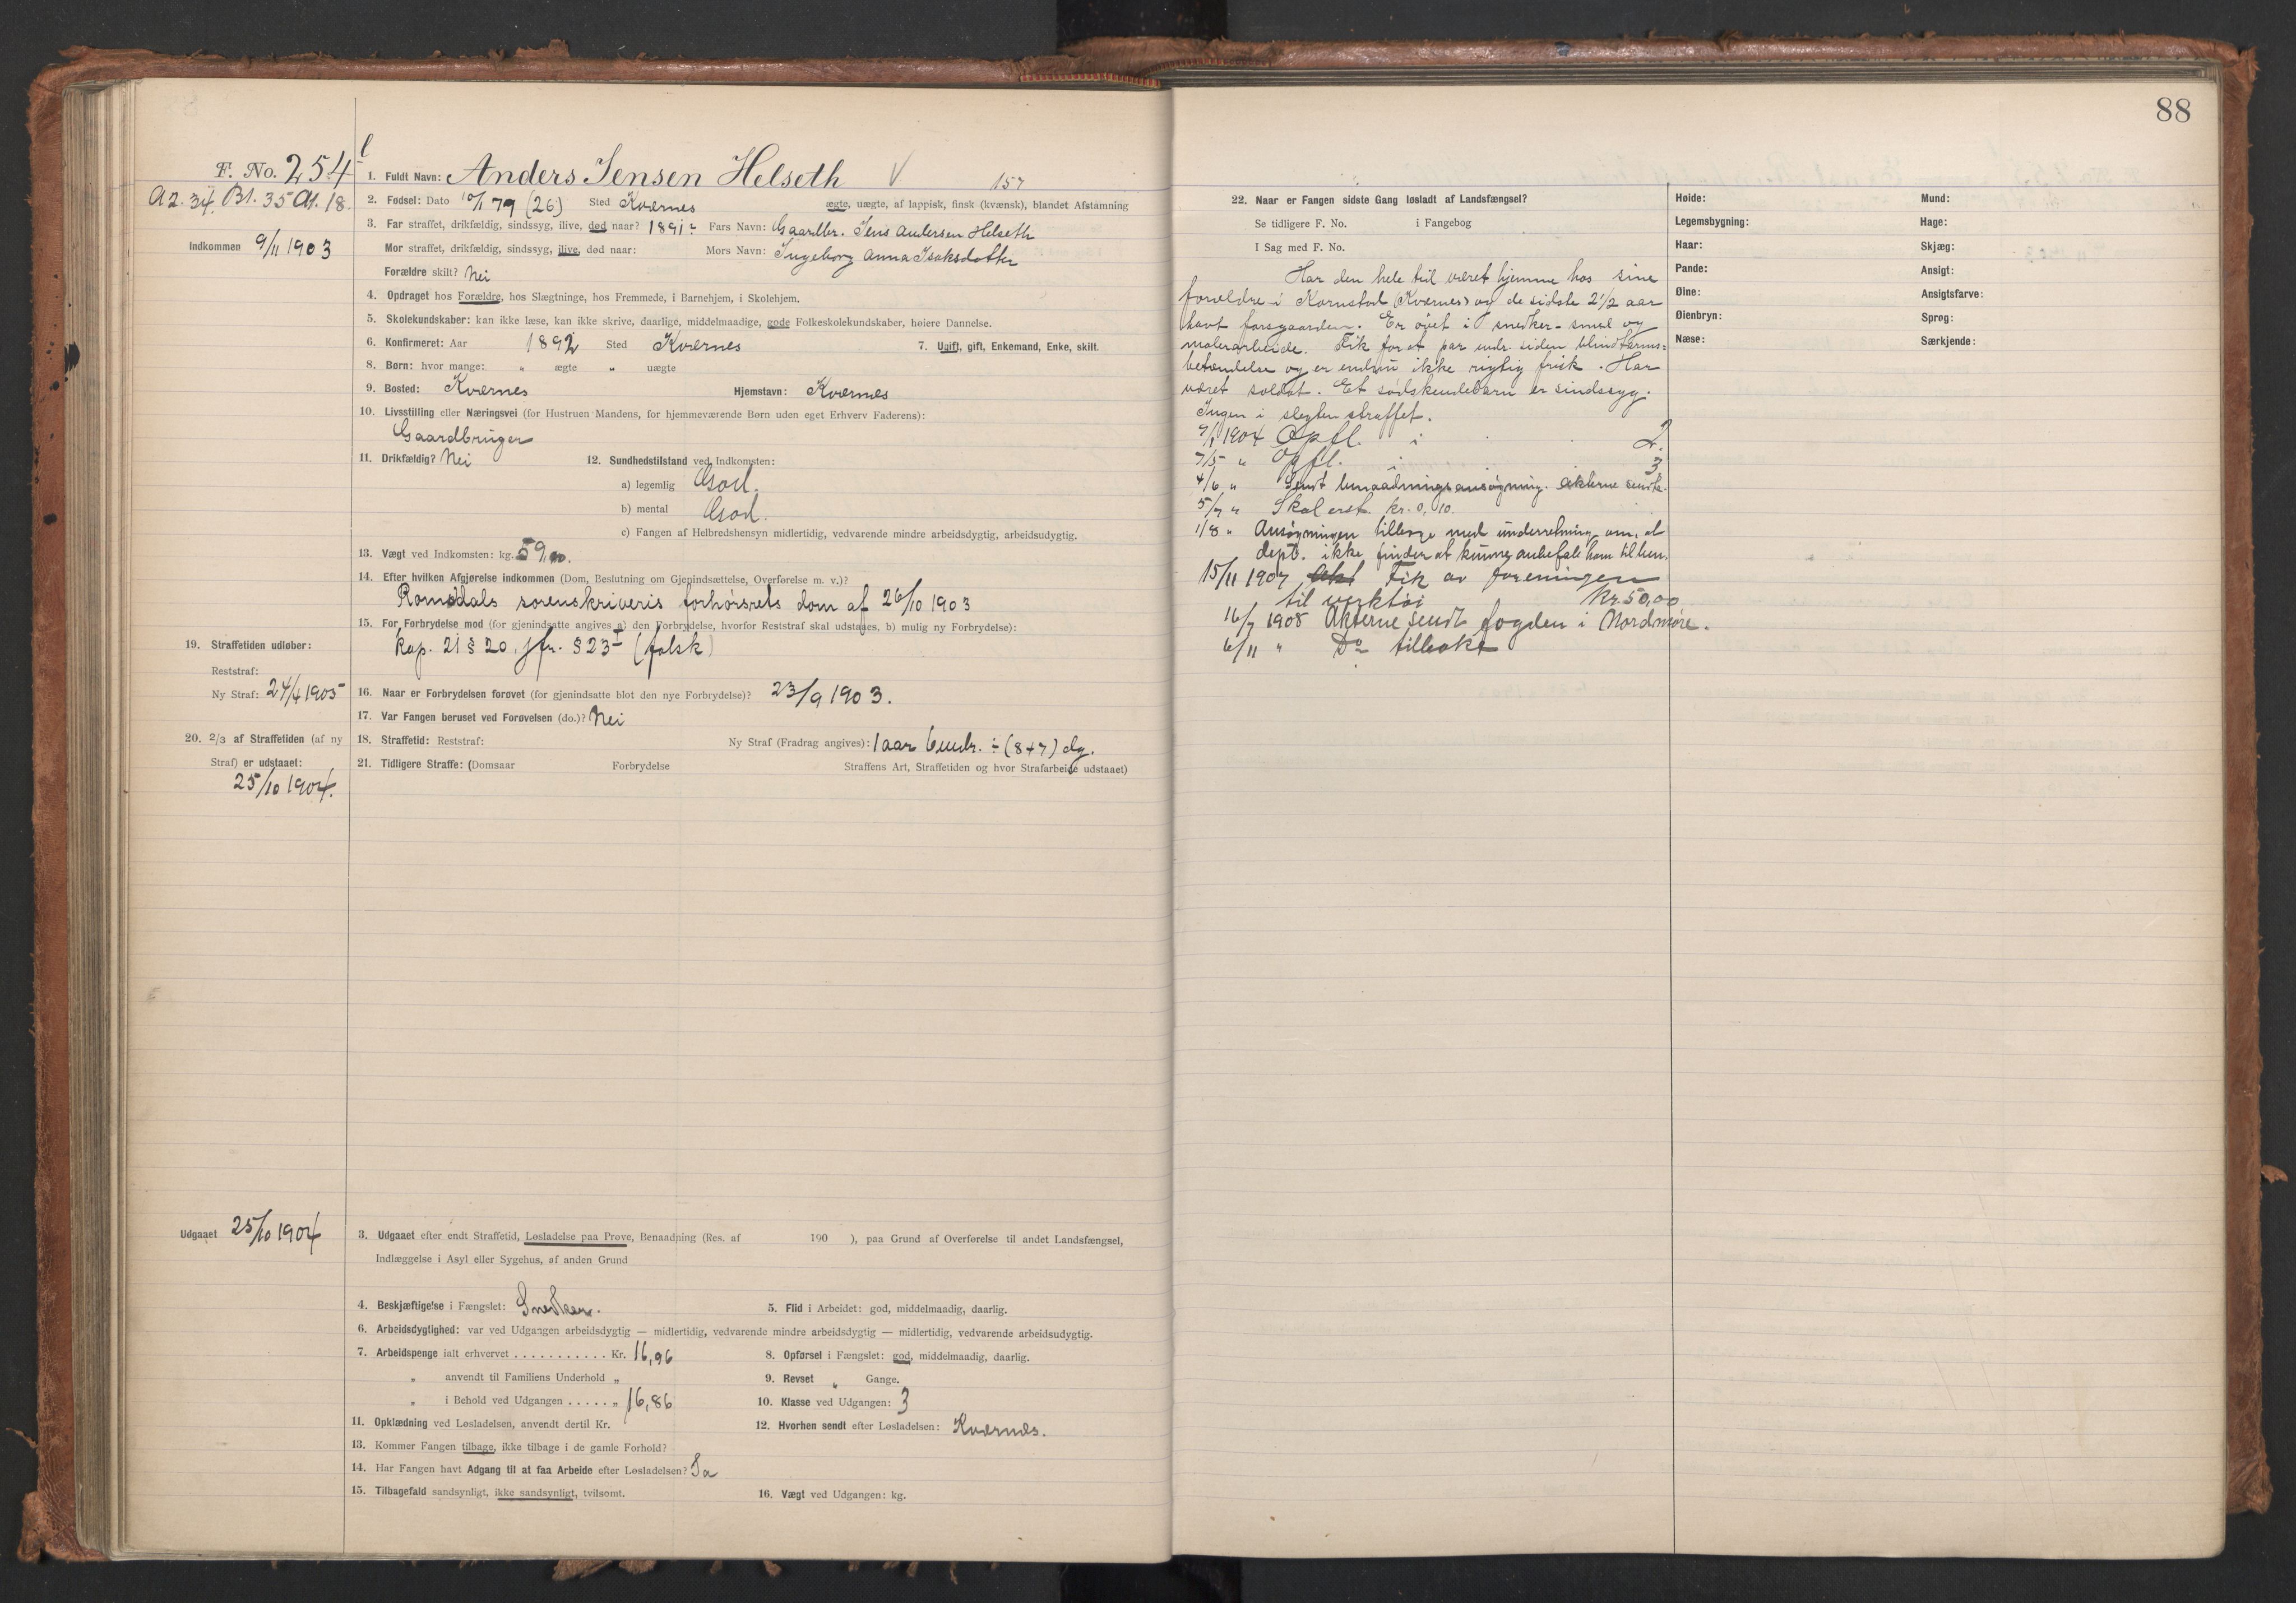 F. No. 254
A2. 34. B1. 35 A1. 18.
Indkommen 9/11 1903
1. Fuldt Navn: Anders Jensen Helseth V 157
2. Fødsel: Dato 10/1 79 (26) Sted Kvernes ægte, uægte, af lappisk, finsk (kvænsk), blandet Afstamning
3. Far straffet, drikfældig, sindssyg, ilive, død naar? 1891? Fars Navn: Gaardbr. Jens Andersen Helseth
Mor straffet, drikfældig, sindssyg, ilive, død naar: Mors Navn: Ingeborg Anna Isaksdatter
Forældre skilt? Nei
4. Opdraget hos Forældre, hos Slægtninge, hos Fremmede, i Barnehjem, i Skolehjem.
5. Skolekundskaber: kan ikke læse, kan ikke skrive, daarlige, middelmaadige, gode Folkeskolekundskaber, høiere Dannelse.
6. Konfirmeret: Aar 1892 Sted Kvernes 7. Ugift, gift, Enkemand, Enke, skilt.
8. Børn: hvor mange: " ægte " uægte
9. Bosted: Kvernes Hjemstavn: Kvernes
10. Livsstilling eller Næringsvei (for Hustruen Mandens, for hjemmeværende Børn uden eget Erhverv Faderens):
Gaardbruger
11. Drikfældig? Nei 12. Sundhedstilstand ved Indkomsten:
a) legemlig God.
b) mental God.
c) Fangen af Helbredshensyn midlertidig, vedvarende mindre arbeidsdygtig, arbeidsudygtig.
13. Vægt ved Indkomsten: kg. 59,00.
14. Efter hvilken Afgjørelse indkommen (Dom, Beslutning om Gjenindsættelse, Overførelse m. v.)?
Romsdals sorenskriveris forhørsrets dom af 26/10 1903
15. For Forbrydelse mod (for gjenindsatte angives a) den Forbrydelse, hvorfor Reststraf skal udstaaes, b) mulig ny Forbrydelse):
Kap. 21 § 20, jfr. § 23 I (falsk)
19. Straffetiden udløber:
Reststraf:
Ny Straf: 24/4 1905
16. Naar er Forbrydelsen forøvet (for gjenindsatte blot den nye Forbrydelse)? 23/9 1903.
17. Var Fangen beruset ved Forøvelsen (do.)? Nei
20. 2/3 af Straffetiden (af ny
Straf) er udstaaet:
25/10 1904.
18. Straffetid: Reststraf: Ny Straf (Fradrag angives): 1 aar 6 mdr. ÷ (8+7) dg.
21. Tidligere Straffe: (Domsaar Forbrydelse Straffens Art, Straffetiden og hvor Strafarbeide udstaaet)
Udgaaet 25/10 1904
3. Udgaaet efter endt Straffetid, Løsladelse paa Prøve, Benaadning (Res. af 190 ), paa Grund af Overførelse til andet Landsfængsel,
Indlæggelse i Asyl eller Sygehus, af anden Grund
4. Beskjæftigelse i Fængslet: Snedker. 5. Flid i Arbeidet: god, middelmaadig, daarlig.
6. Arbeidsdygtighed: var ved Udgangen arbeidsdygtig — midlertidig, vedvarende mindre arbeidsdygtig — midlertidig, vedvarende arbeidsudygtig.
7. Arbeidspenge ialt erhvervet . . . . . . . . . . . Kr. 16,96 8. Opførsel i Fængslet: god, middelmaadig, daarlig.
" anvendt til Familiens Underhold " 9. Revset " Gange.
" i Behold ved Udgangen . . . . . " 16,86 10. Klasse ved Udgangen: 3
11. Opklædning ved Løsladelsen, anvendt dertil Kr. 12. Hvorhen sendt efter Løsladelsen: Kvernes.
13. Kommer Fangen tilbage, ikke tilbage i de gamle Forhold?
14. Har Fangen havt Adgang til at faa Arbeide efter Løsladelsen? Ja
15. Tilbagefald sandsynligt, ikke sandsynligt, tvilsomt. 16. Vægt ved Udgangen: kg.
88
22. Naar er Fangen sidste Gang løsladt af Landsfængsel?
Se tidligere F. No. i Fangebog
I Sag med F. No.
Har den hele tid været hjemme hos sine
forældre i Kornstad (Kvernes) og de sidste 2 1/2 aar
havt farsgaarden. Er øvet i snedker- smed og
malerarbeide. Fik for et par mdr. siden blindtarms-
betændelse og er endnu ikke rigtig frisk. Har
været soldat. Et sødskendebarn er sindssyg.
Ingen i slegten straffet.
7/1 1904 Opfl. i 2.
7/5 " Opfl. i 3
4/6 " Sendt benaadningsansøgning. Akterne sendte.
5/7 " Skal erst. kr. 0,10.
1/8 " Ansøgningen tilbage med underretning om, at
dept. ikke finder at kunne anbefale ham til ben.
15/11 1907 Fik av foreningen
til verktøi kr. 50,00
16/7 1908 Akterne sendt fogden i Nordmøre.
6/11 " Do tilbake
Høide: Mund:
Legemsbygning: Hage:
Haar: Skjæg:
Pande: Ansigt:
Øine: Ansigtsfarve:
Øienbryn: Sprog:
Næse: Særkjende: